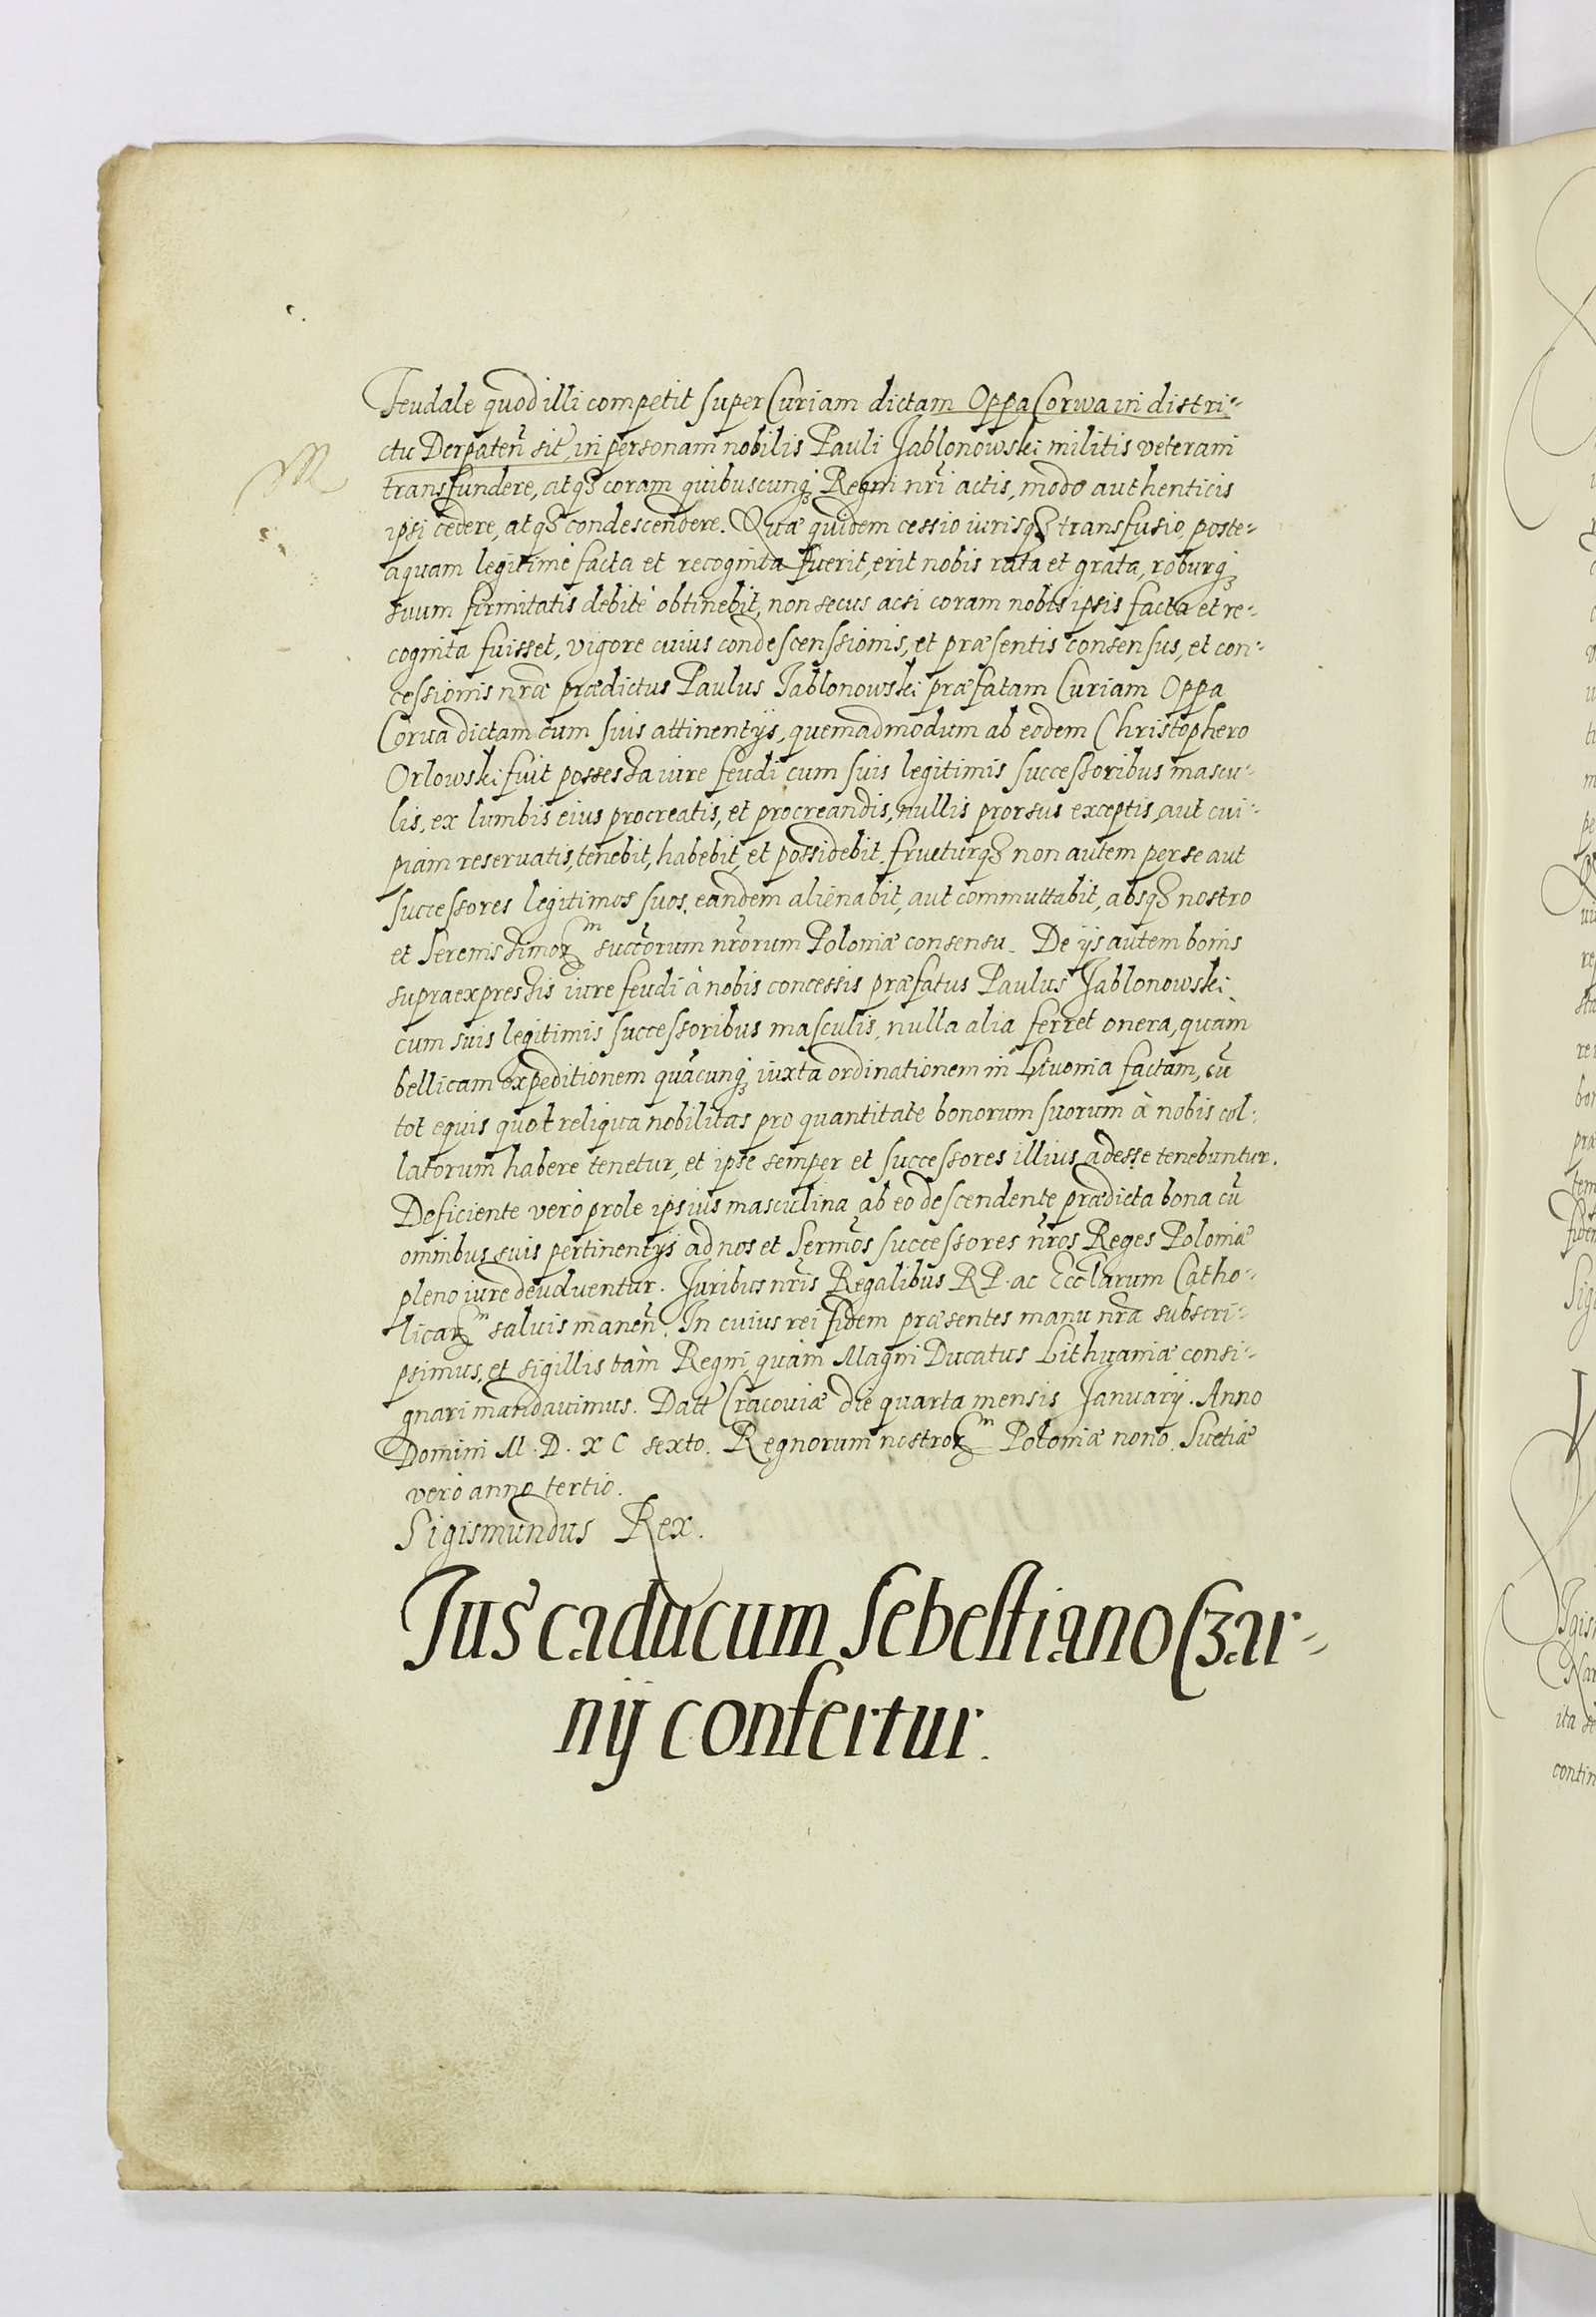 Feudale quod illi competit super Curiam dictam Oppa Corwa in distri-
ctu Derpateñ sit̃, in personam nobilis Pauli Jablonowski militis veterani
transfundere, atqȝ coram quibuscunqȝ Regni nr̃i actis, modo authenticis
ipsi cedere, atqȝ condescendere. Quæ quidem cessio iurisqȝ transfusio, poste-
aquam legitimè facta et recognita fuerit, erit nobis rata et grata, roburqȝ
suum firmitatis debitè obtinebit, non secus acsi coram nobis ipsis facta et re-
cognita fuisset, vigore cuius condescenssionis, et præsentis consensus, et con-
cessionis nr̃æ prædictus Paulus Jablonowski præfatam Curiam Oppa
Corua dictam cum suis attinentijs, quemadmodum ab eodem Christophero
Orlowski fuit possessa iure feudi cum suis legitimis successoribus mascu-
lis, ex lumbis eius procreatis, et procreandis, nullis prorsus exceptis aut cui-
piam reseruatis, tenebit, habebit, et possidebit. frueturqȝ non autem per se aut
successores legitimos suos, eandem alienabit, aut commuttabit, absqȝ nostro
et Serenissimoꝝm succ̃orum nr̃orum Poloniæ consensu. De ijs autem bonis
supraexpressis iure feudi à nobis concessis præfatus Paulus Jablonowski
cum suis legitimis successoribus masculis, nulla alia ferret onera, quàm
bellicam expeditionem quãcunqȝ iuxta ordinationem in Liuonia factam, cũ
tot equis quot reliqua nobilitas pro quantitate bonorum suorum à nobis col-
latorum habere tenetur, et ipse semper et successores illius adesse tenebuntur.
Deficiente verò prole ipsius masculina ab eo descendente prædicta bona cũ
omnibus suis pertinentijs ad nos et Serm̃os successores nr̃os Reges Poloniæ
pleno iure deuoluentur. Juribus nr̃is Regalibus RP. ac Eccl̃arum Catho-
licaꝝm saluis maneñ. In cuius rei fidem præsentes manu nr̃a subscri-
psimus, et sigillis tàm Regni, quàm Magni Ducatus Lithuaniæ consi-
gnari mandauimus. Datt̃ Cracouiæ die quarta mensis Januarij. Anno
Domini M. D. X C sexto. Regnorum nostroꝝm Poloniæ nono. Suetiæ
verò anno tertio.
Sigismundus Rex.
Jus caducum Sebestiano Czar-
nij confertur.